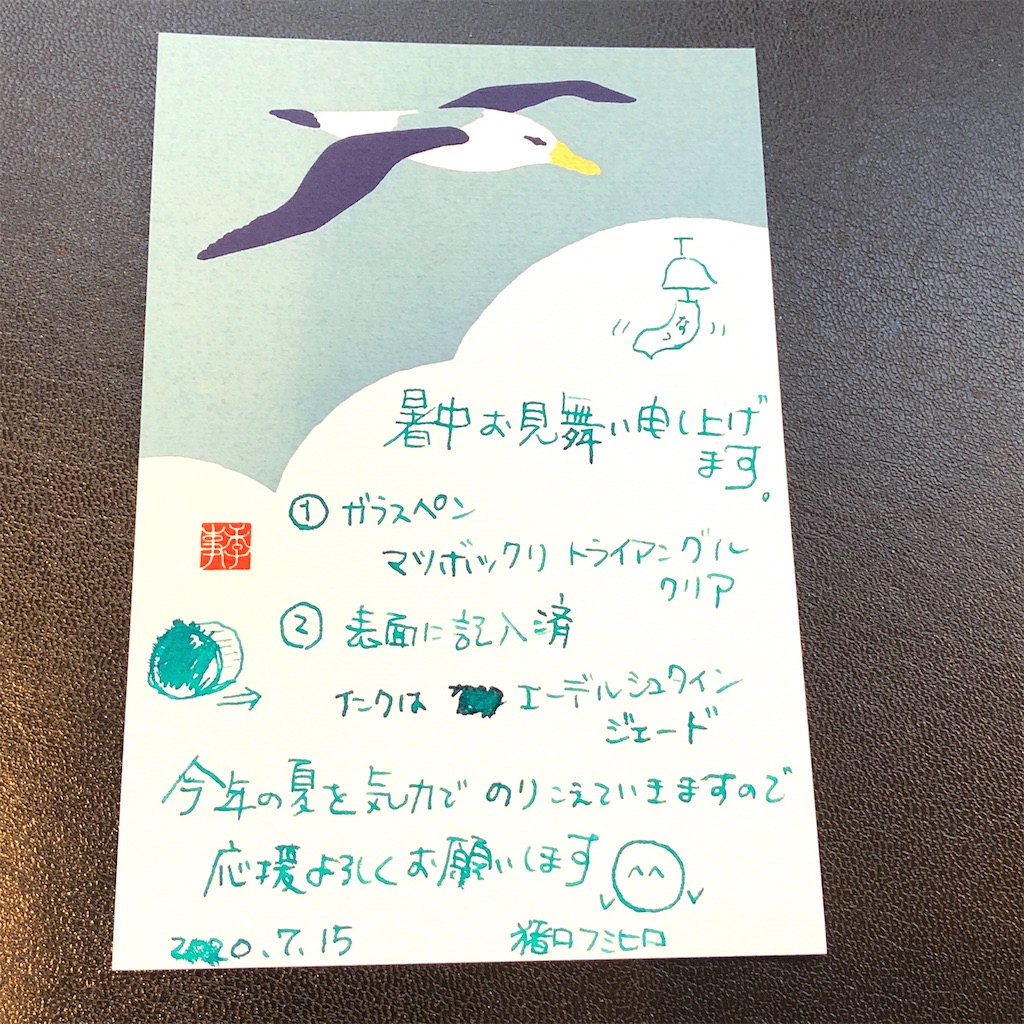 なつ
暑中お見舞い申し上げ
ます。
① ガラスペン
マツボックリ トライアングル
クリア
季事
② 表面に記入済
インクは エーデルシュタイン
ジェード
今年の夏を気力で のりこえていきますので
応援よろしくお願いします
2020.7.15 猪口フミヒロ